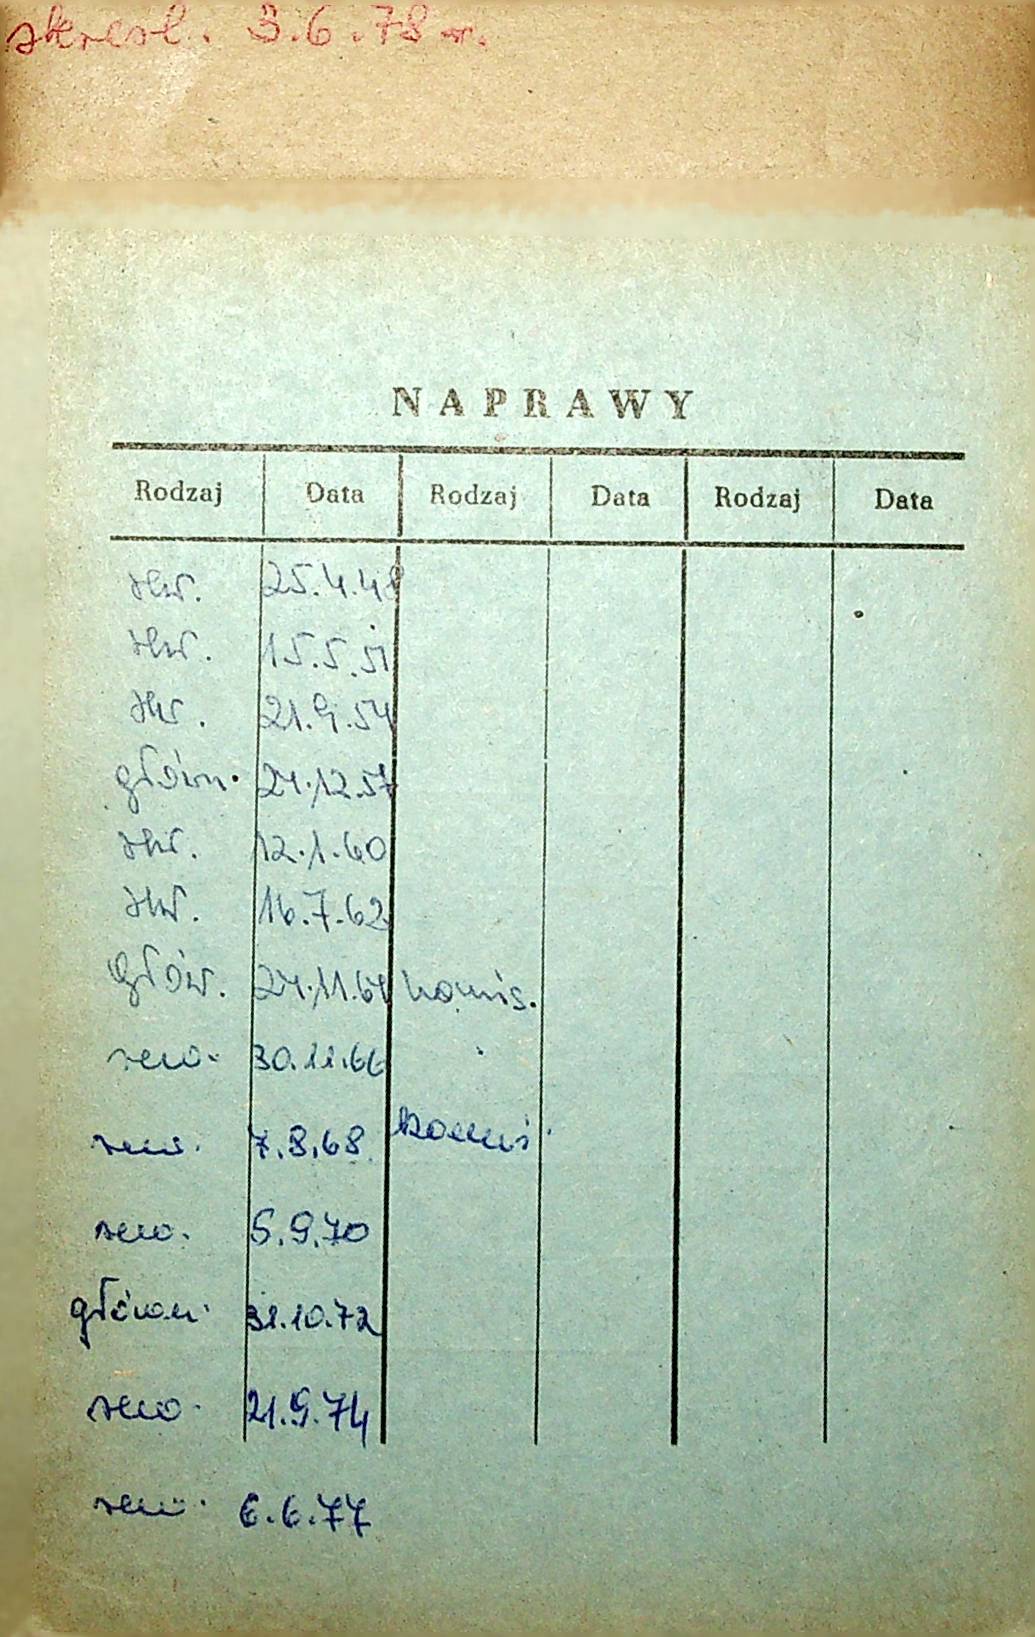 skreśl. 3.6.78 r.
NAPRAWY
Rodzaj Data Rodzaj Data Rodzaj Data
25.4.48
15.5.51
21.9.54
główn. 24.12.57
12.1.60
16.7.62
Głów. 24.11.64 komis.
rew. 30.11.66
rew. 7.8.68 komis.
rew. 5.9.70
główn. 31.10.72
rew. 21.9.74
rew. 6.6.77